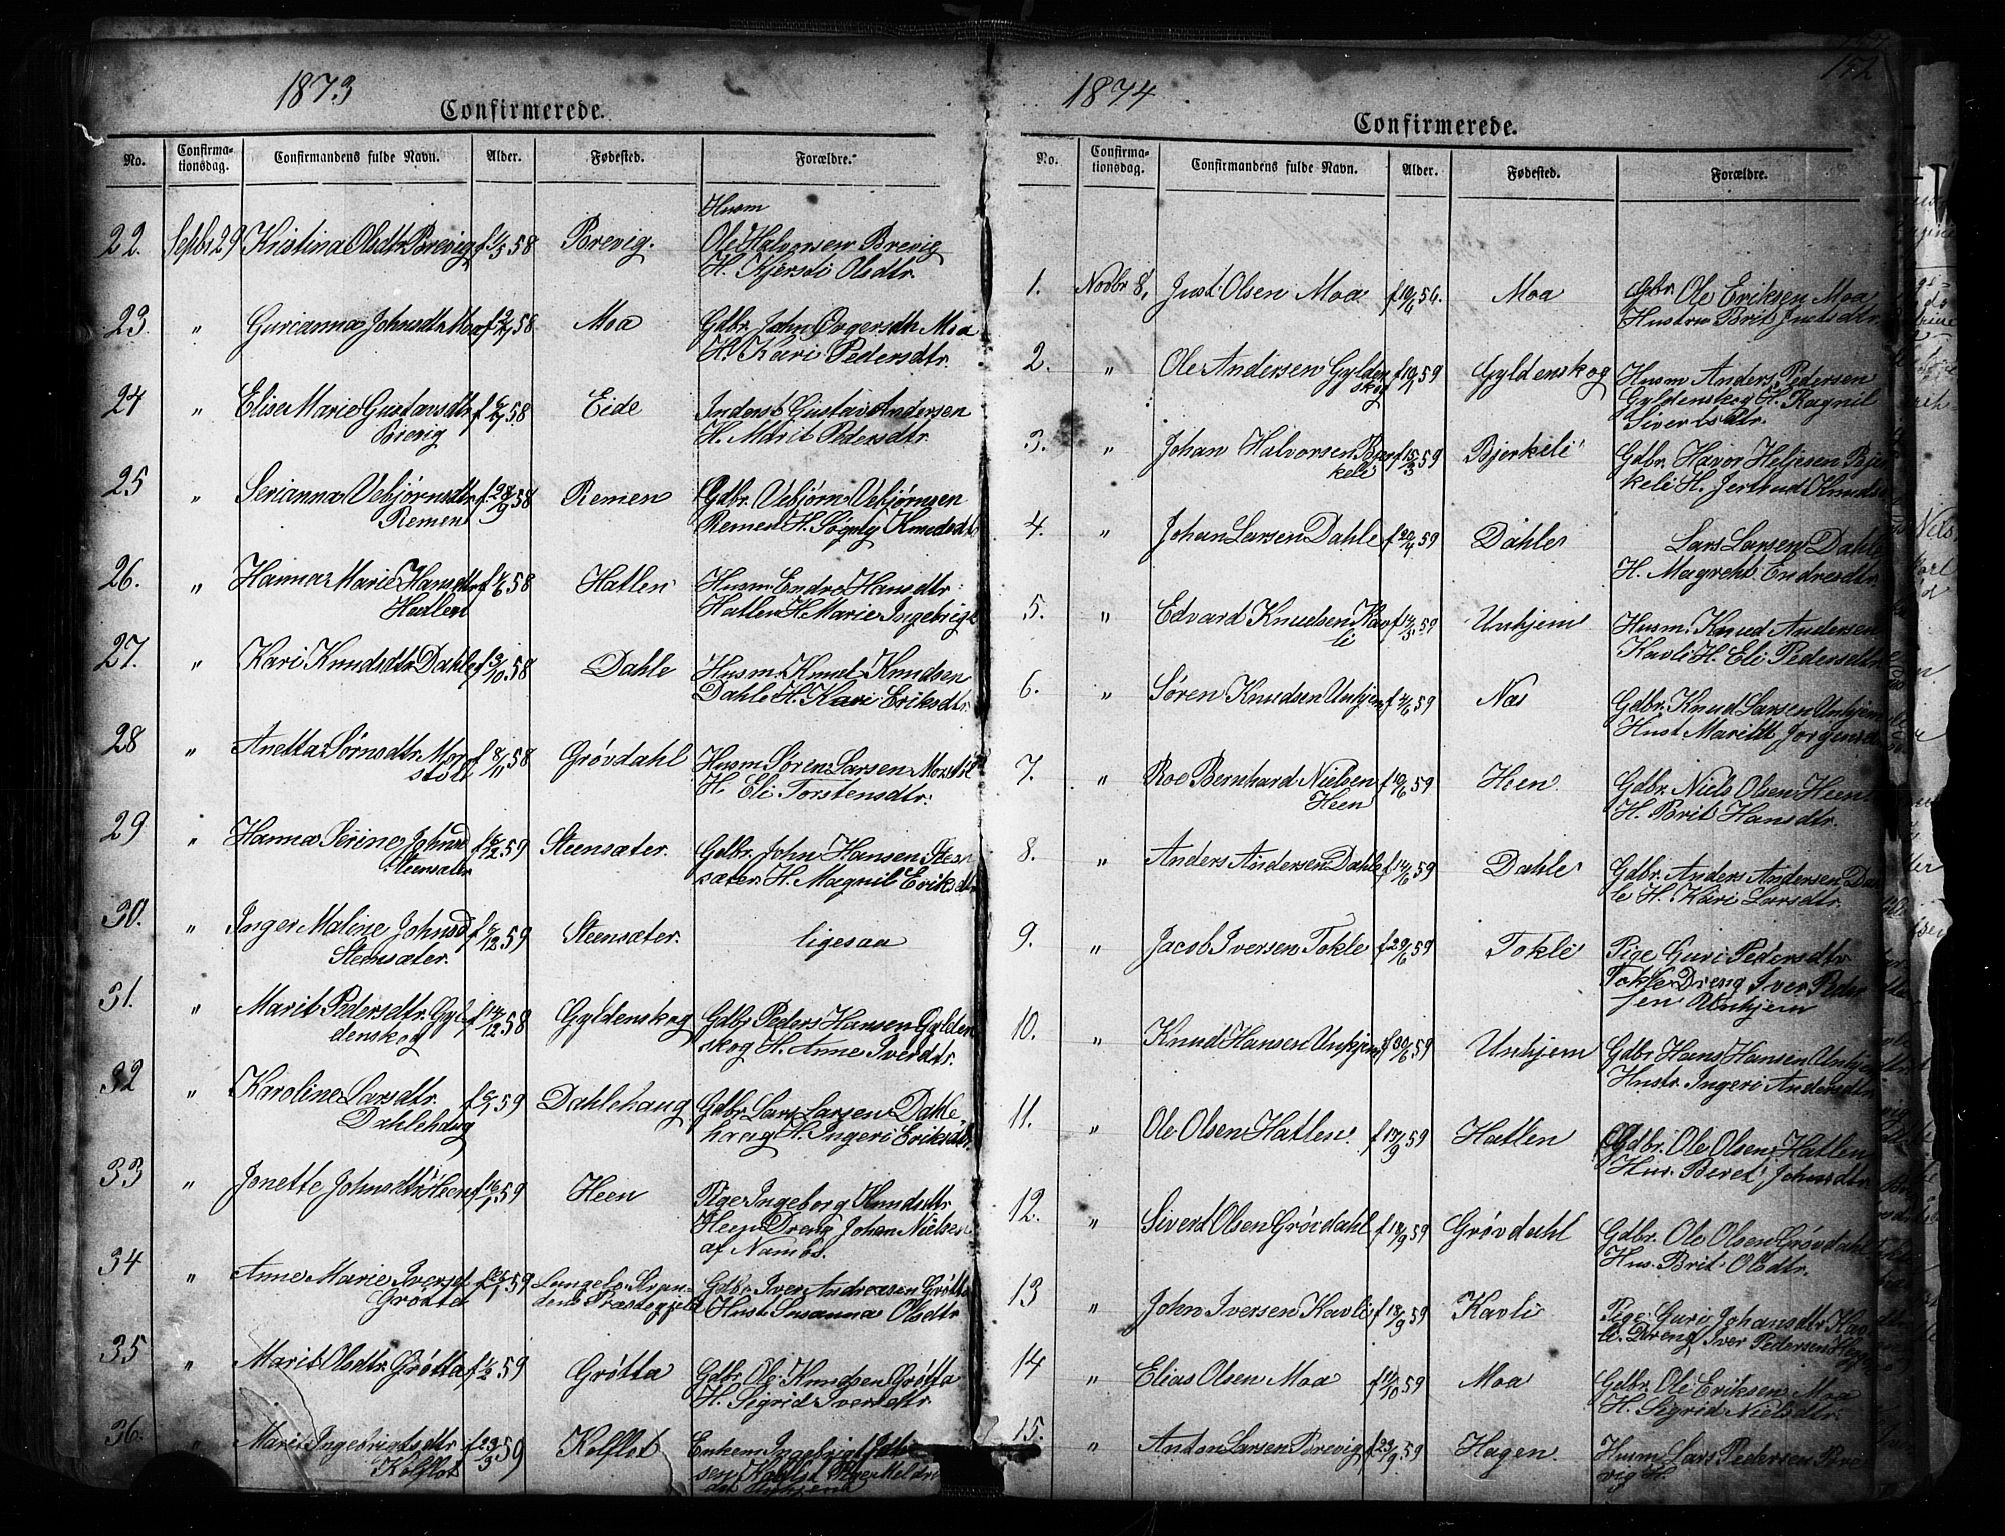 1873
Confirmerede.
No. Confirma-tionsdag. Confirmandens fulde Navn. Alder. Fødested. Forældre.
22. Septbr 29 Kristina Olsdtr Brevig f 1/5 58 Brevig. Husm
Ole Halvorsen Brevig
H. Kjersti Olsdtr.
23. " Gurianna Johnsdtr Moa 58 Moa Gdbr. John Moa
H. Kari Pedersdtr.
24 " Elise Marie Gustavsdtr 58 Eide Inderst Gustav Andersen
Brevig H. Marit Pedersdtr
25 " Serianna Vebjørnsdtr f 28/9 58 Remen Gdbr. Vebjørn Vebjørnsen
Remen Remen H. Knudsdtr
26. " Hanna Marie Hansdtr 58 Hatlen Husm. Endre Hansdtr
Hatlen Hatlen H. Marie Ingebrigt
27. " Kari Knudsdtr Dahle f 3/10 58 Dahle Husm. Knut Knudsen
Dahle H. Kari Eriksdtr.
28 " Anetta Sørnsdtr. Mor f 8/11 58 Grøvdahl Husm Søren Larsen Morstøl
støl H. Eli Torstensdtr.
29 " Hanna Serine Johnsd 59 Steensæter. Gdbr. John Hansen Steen
Steensæter sæter H. Magnil Eriksdtr
30. " Inger Maline Johnsd 59 Steensæter. ligesaa
Steensæter.
31. " Marit Pedersdtr. Gyl f 14/12 58 Gyldenskog Gdbr Peder Hansen Gylden
denskog skog H. Anne Iversdtr.
32 " Karoline Larsdtr. 59 Dahlehaug Gdbr. Lars Larsen Dahle
Dahlehaug haug H. Ingeri Eriksdtr.
33 " Jonette Johnsdtr Heen f 16/1 59 Heen Pige Ingeborg Knudsdtr
Heen Dreng Johan Nielsen
af Namos.
34 " Anne Marie Iversd 59 Langelo Stran- Gdbr. Iver Andreasen Grøtta
Grøtta dens Præstegjeld Hust. Susanna Olsdtr
35 " Marit Olsdtr. Grøtta f 1/2 59 Grøtta Gdbr. Ole Knudsen Grøtta
H. Sigrid Iversdtr.
36. " Marie Ingebrigtsdtr f 23/3 59 Kolflot Enkem Ingebrigt
Kolflot sen Kolflot Pige

1874
Confirmerede.
No. Confirma-tionsdag. Confirmandens fulde Navn. Alder. Fødested. Forældre.
1. Novbr 8, Just Olsen Moa f 19/6 56. Moa Gdbr. Ole Eriksen Moa
Hustru Brit Justsdtr
2. " Ole Andersen Gylden f 19/1 59 Gyldenskog Husm Anders Pedersen
skog Gyldenskog H. Ragnil
Sivertsdtr.
3. " Johan Halvorsen Bjer f 15/3 59 Bjerkeli Gdbr. Havor Heljesen Bjer
keli keli H. Jertrud Knuds
4. " Johan Larsen Dahle f 20/4 59 Dahle Lars Larsen Dahle
H. Magrete Endresdtr
5. " Edvard Knudsen Kav 59 Unhjem Husm. Knud Andersen
li Kavli H. Eli Pedersdtr
6. " Søren Knudsen Unhjem 59 Næs Gdbr. Knud Larsen Unhjem
Hust. Marith Jørgensd
7. " Roe Bernhard Nielsen f 10/6 59 Heen. Gdbr. Niels Olsen Heen
Heen H. Brit Hansdtr.
8. " Anders Andersen Dahle f 14/6 59 Dahle Gdbr. Anders Andersen Dah
le H. Kari Larsdtr.
9. " Jacob Iversen Tokle f 29/6 59 Tokle Pige Guri Pedersdtr
Tokle Dreng Iver Peder
sen Unhjem
10. " Knud Hansen Unhjem f 30/6 59 Unhjem Gdbr Hans Hansen Unhjem
Hustr. Ingeri Andersdtr
11. " Ole Olsen Hatlen. f 13/9 59 Hatlen Gdbr. Ole Olsen Hatlen
Hus. Beret Johnsdtr.
12. " Sivert Olsen Grøvdahl f 18/9 59 Grøvdahl Gdbr. Ole Olsen Grøvdahl
Hus. Brit Olsdtr.
13 " John Iversen Kavli f 18/9 59 Kavli Pige Guri Johansdtr Kav
li. Dreng Iver Pedersen
14 " Elias Olsen Moa 59 Moa Gdbr. Ole Eriksen Moa
H. Sigrid Nielsdtr.
15. " Anton Larsen Brevig f 23/9 59 Hagen. Husm Lars Pedersen Bre
vig H.